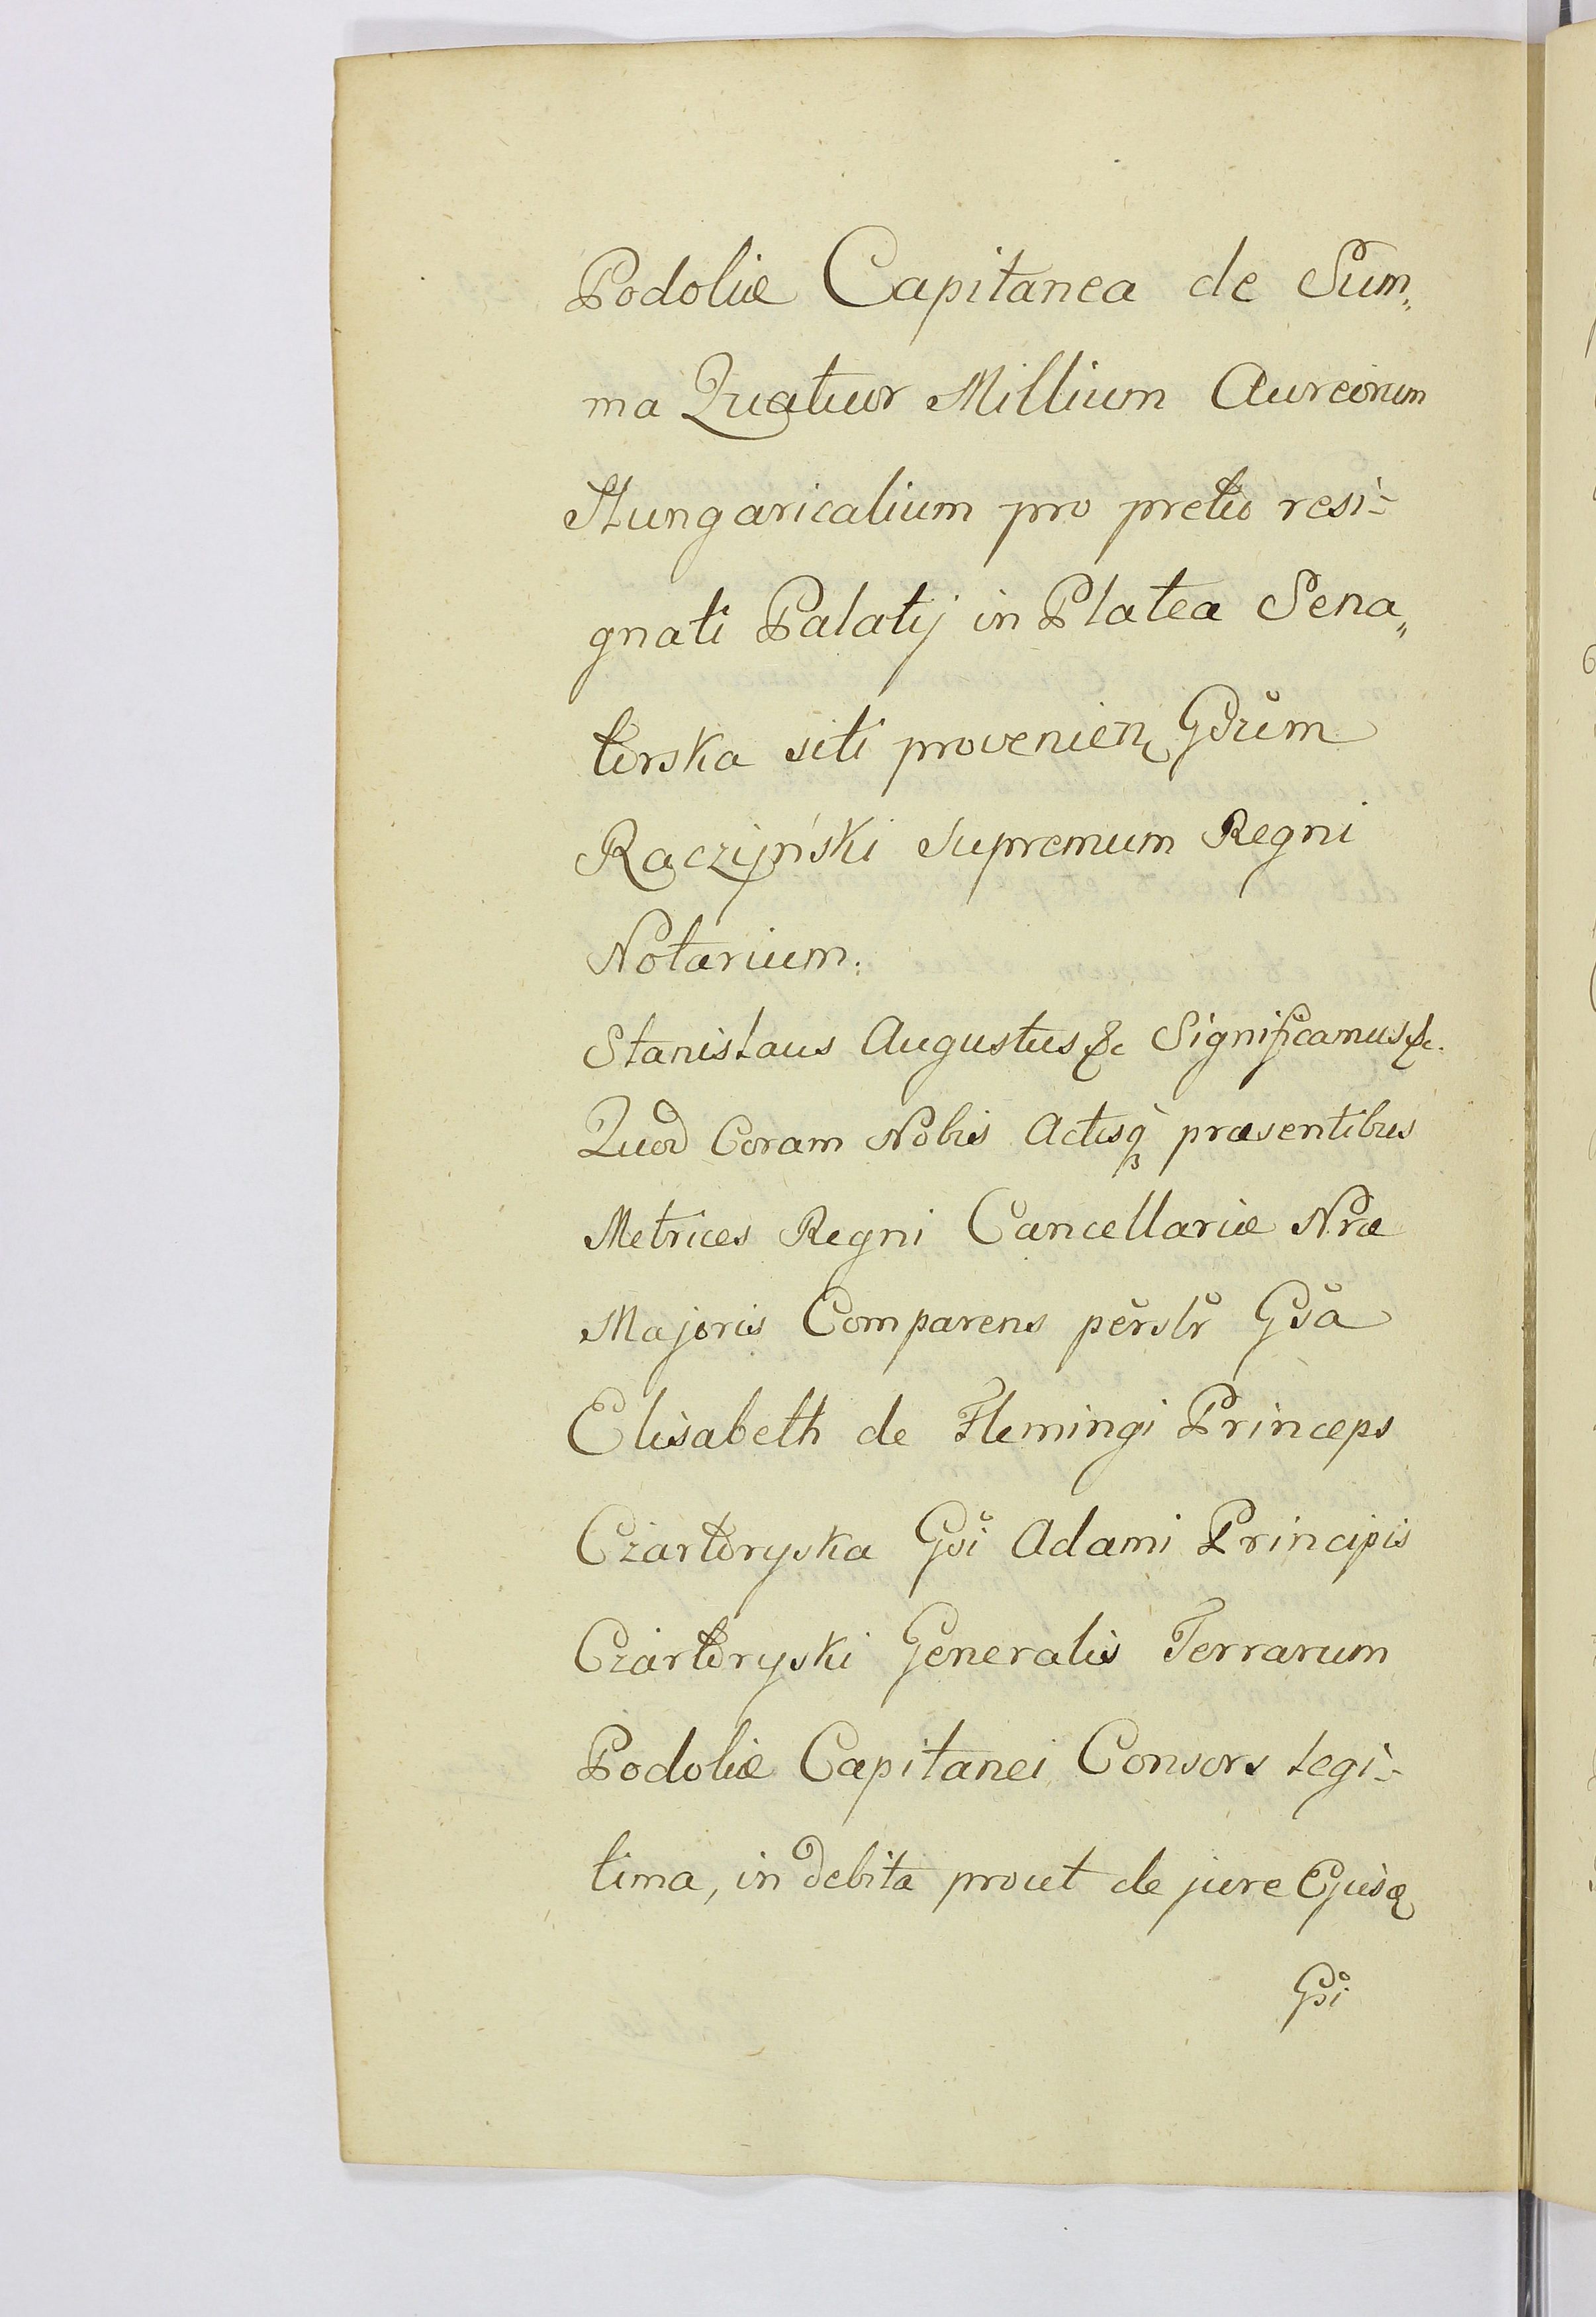 Podoliæ Capitanea de Sum„
ma Quatuor Millium Aureorum
Hungaricalium pro pretio resi=
gnati Palatij in Platea Sena„
torska siti provenien: Gsrŭm
Raczyński Supremum Regni
Notarium.
Stanislaus Augustus &c Significamus &c.
Quod Coram Nobis Actisq̀ præsentibus
Metrices Regni Cancellariæ Nræ
Majoris Comparens pěrsłr Gsă
Elisabeth de Flemingi Princeps
Czartoryska Gsi Adami Principis
Czartoryski Generalis Terrarum
Podoliæ Capitanei Consors legi=
tima, in debita prout de jure Ejusq
Gsi